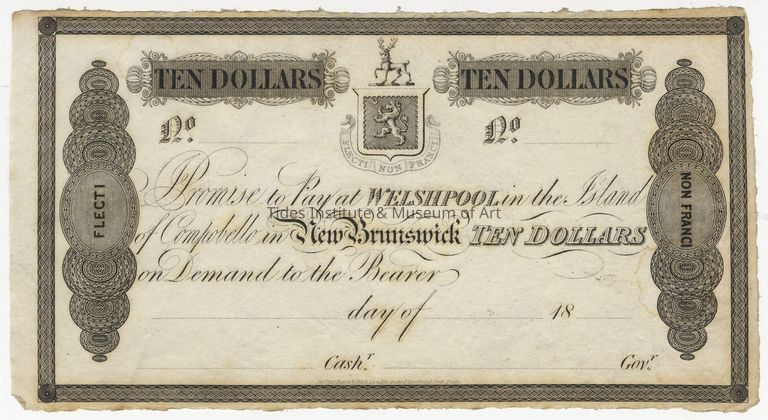 TEN DOLLARS TEN DOLLARS
No. No.
FLECTI NON FRANGI
FLECTI
NON FRANCI
I Promise to Pay at WELSHPOOL in the Island
Tides Institute & Museum of Art
of Campobello in New Brunswick TEN DOLLARS
on Demand to the Bearer
day of 18
Cashr. Govr.